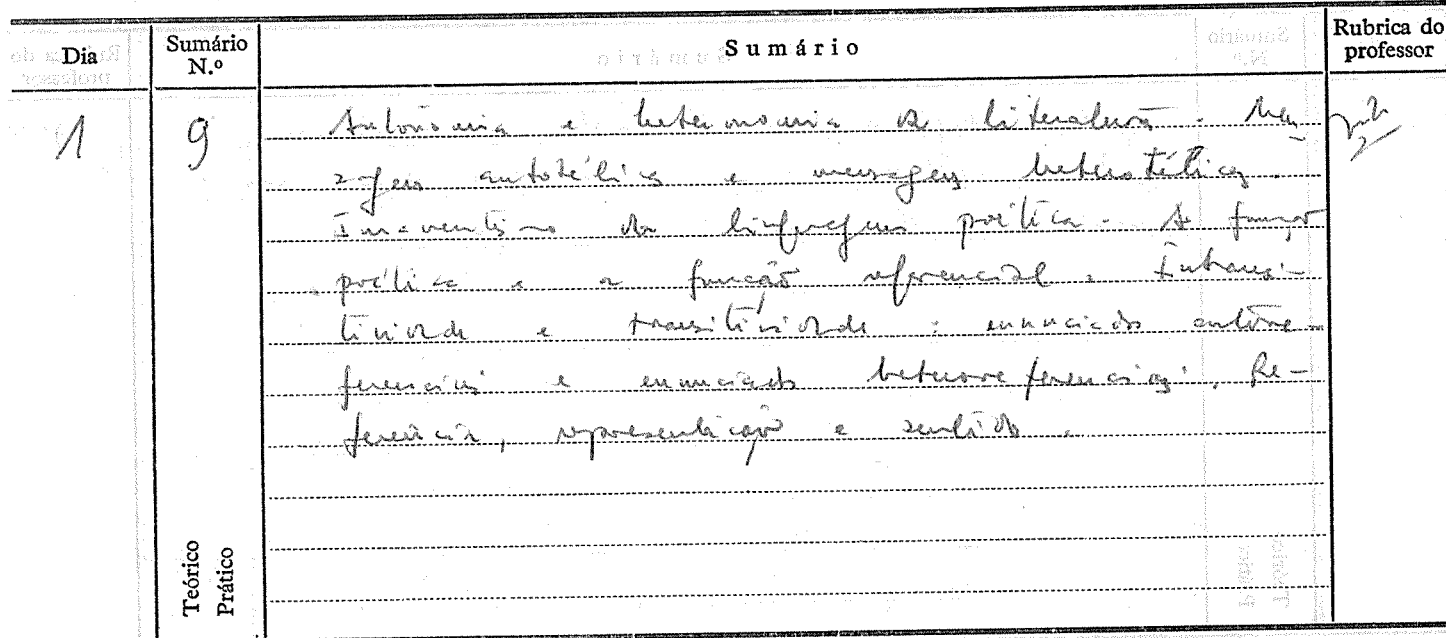 Dia
Sumário N.º
Sumário
Rubrica do professor
1
9
Autonomia e heteronomia da literatura. Men-
sagens autotélicas e mensagens heterotélicas.
Imanentismo da linguagem poética. A função
poética e a função referencial. Intransi-
tividade e transitividade: enunciados autorre-
ferenciais e enunciados heterorreferenciais. Re-
ferência, representação e sentido.
Teórico
Prático